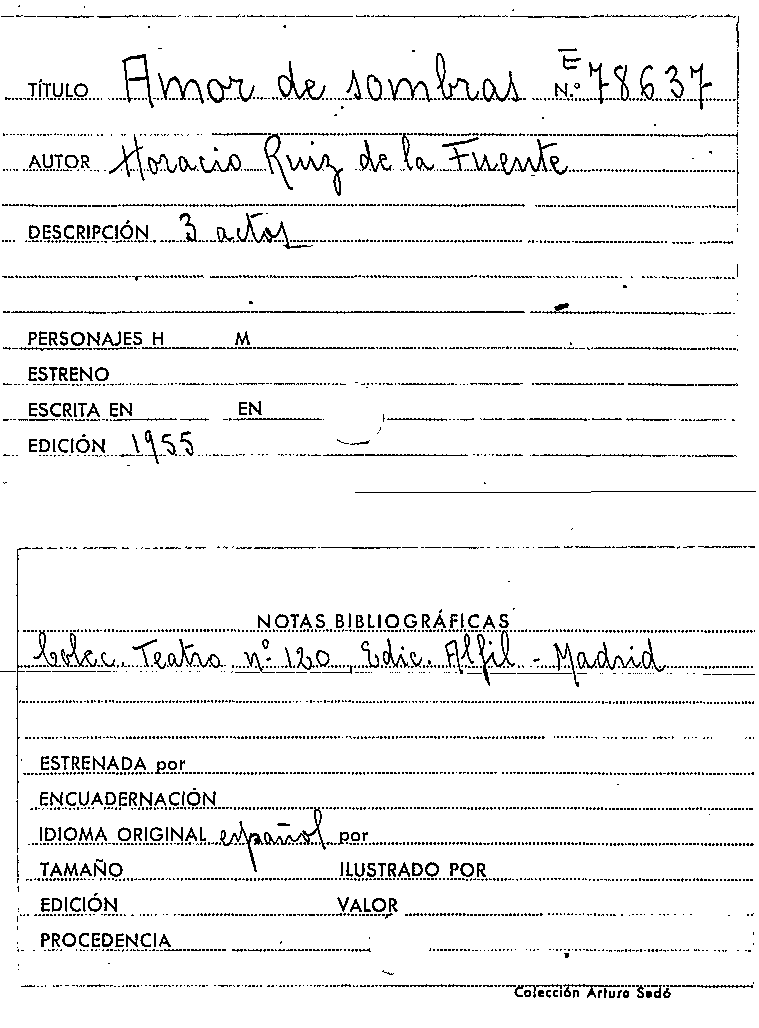 TÍTULO Amor de sombras E N.º 78637
AUTOR Horacio Ruiz de la Fuente
DESCRIPCIÓN 3 actos
PERSONAJES H M
ESTRENO
ESCRITA EN EN
EDICIÓN 1955
NOTAS BIBLIOGRÁFICAS
Colec. Teatro nº 120, Edic. Alfil - Madrid
ESTRENADA por
ENCUADERNACIÓN
IDIOMA ORIGINAL español por
TAMAÑO ILUSTRADO POR
EDICIÓN VALOR
PROCEDENCIA
Colección Arturo Sedó